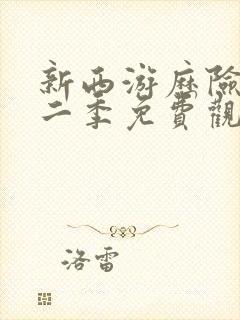 新西游历险
二季免費觀
洛雷